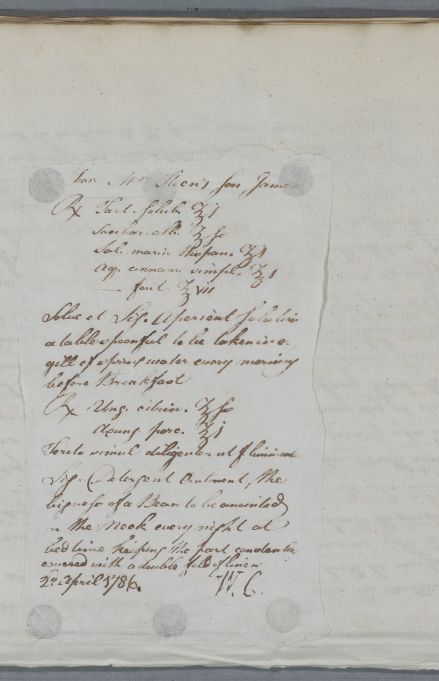 for Mr Steen's son, James
℞ Tart. Solub. ℥j
Sacchar. alb. ℥ſs
Sal. marin Hispan. ℥j
Aq. cinnam. simpl. ℥j
— font. ℥vii
Solve et Sig. Aperient Solution
a tablespoonful to be taken in a
gill of spring water every morning
before Breakfast
℞ Ung. citrin. ℥ſs
Axung. porc. ℥j
simul diligenter ut f
Sig. Detergent Ointment, the
bigness of a Bean to be anointed
on the Neck every night at
bedtime keeping the part constantly
covered with a double fold of linen
2d. April 1786. W. C.